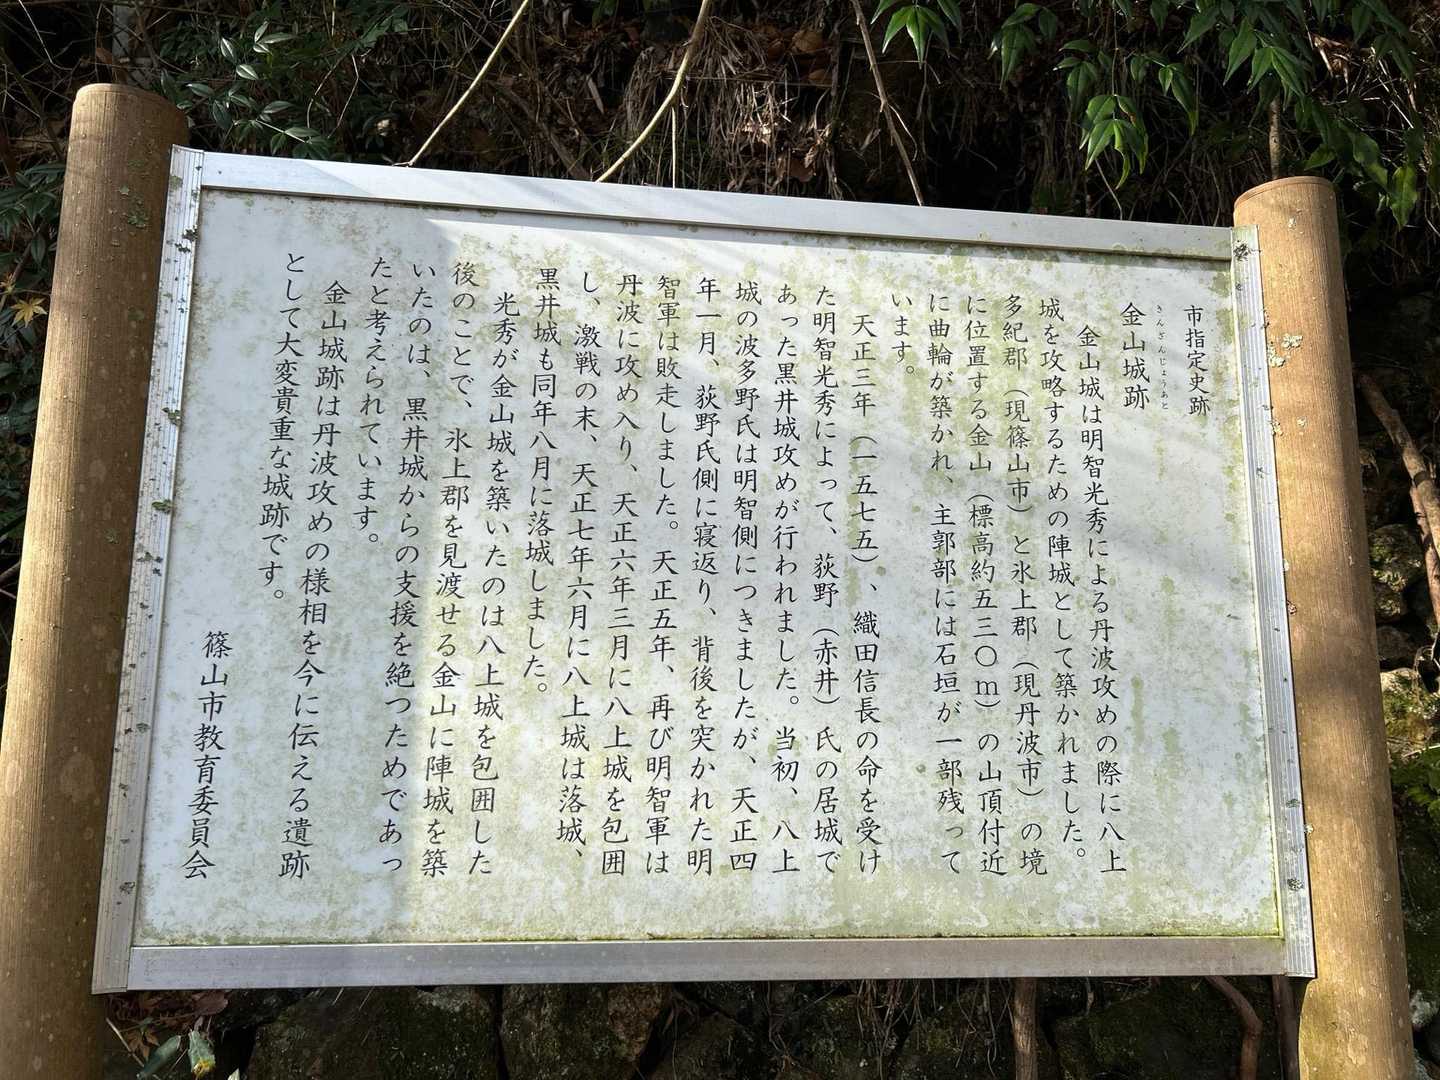 市指定史跡
きんざんじょうあと
金山城跡
金山城は明智光秀による丹波攻めの際に八上
城を攻略するための陣城として築かれました。
多紀郡（現篠山市）と氷上郡（現丹波市）の境
に位置する金山（標高約五三〇ｍ）の山頂付近
に曲輪が築かれ、主郭部には石垣が一部残って
います。
天正三年（一五七五）、織田信長の命を受け
た明智光秀によって、荻野（赤井）氏の居城で
あった黒井城攻めが行われました。当初、八上
城の波多野氏は明智側につきましたが、天正四
年一月、荻野氏側に寝返り、背後を突かれた明
智軍は敗走しました。天正五年、再び明智軍は
丹波に攻め入り、天正六年三月に八上城を包囲
し、激戦の末、天正七年六月に八上城は落城、
黒井城も同年八月に落城しました。
光秀が金山城を築いたのは八上城を包囲した
後のことで、氷上郡を見渡せる金山に陣城を築
いたのは、黒井城からの支援を絶つためであっ
たと考えられています。
金山城跡は丹波攻めの様相を今に伝える遺跡
として大変貴重な城跡です。
篠山市教育委員会